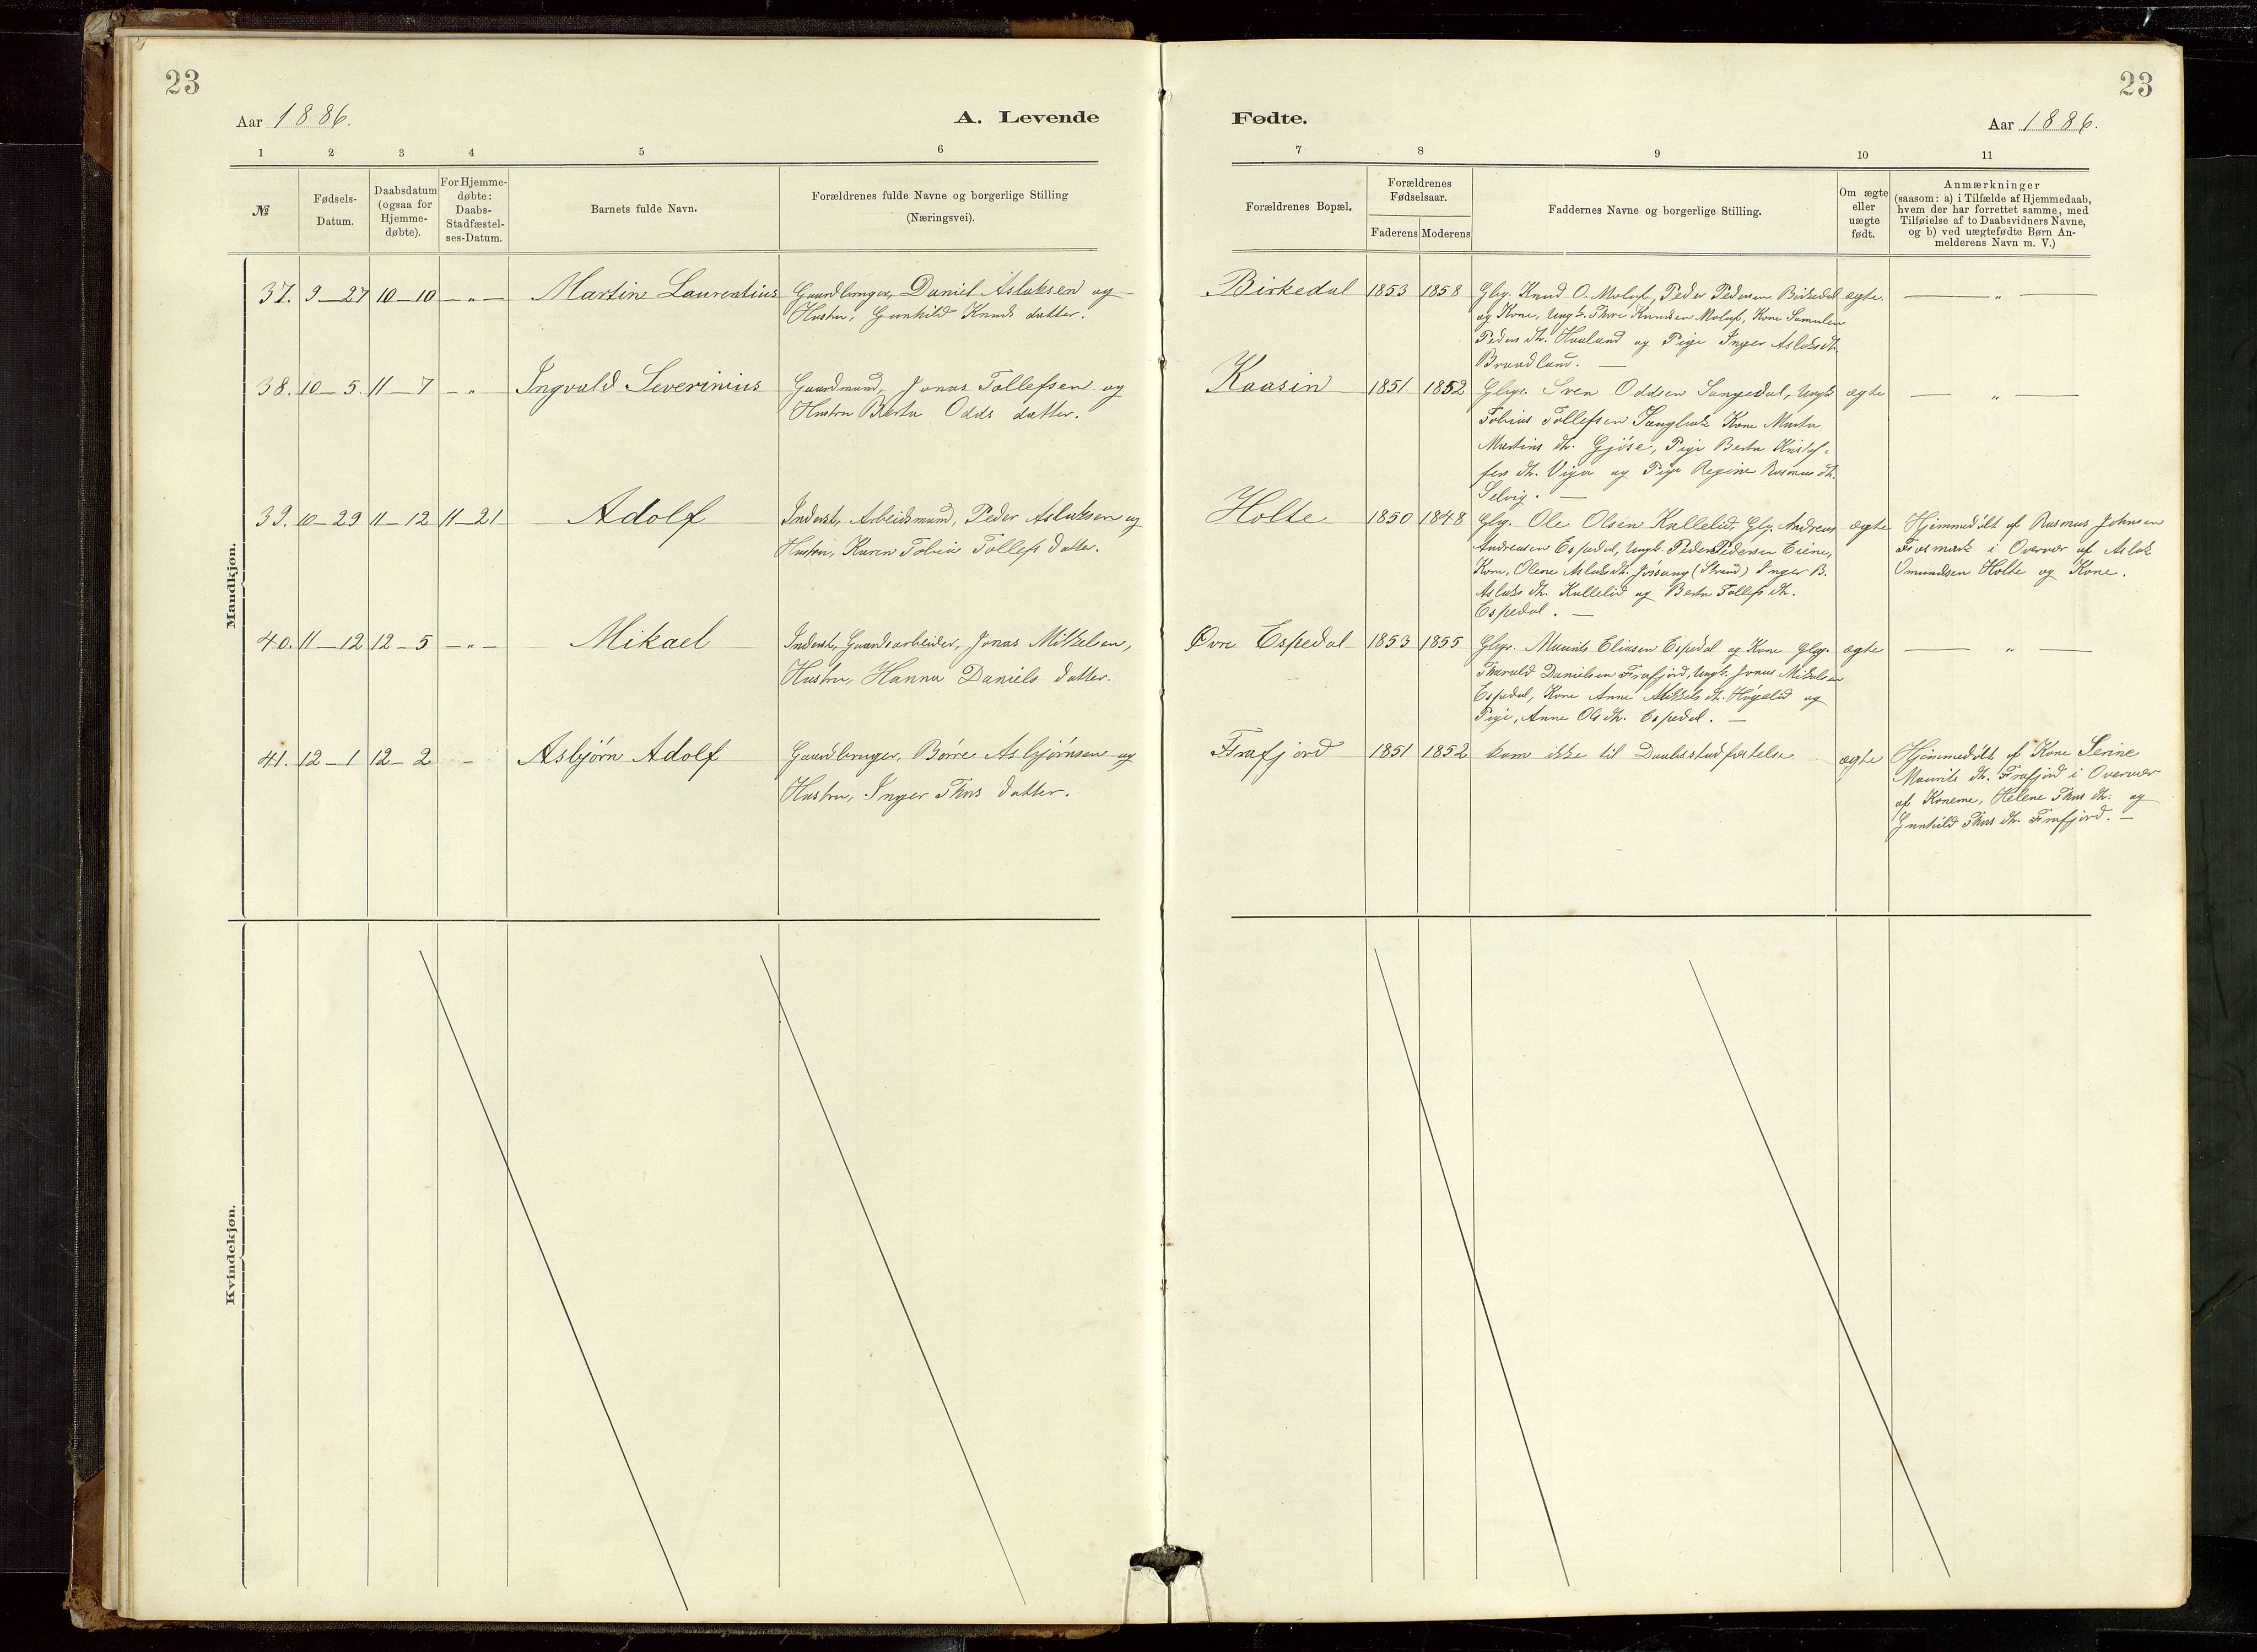 23
Aar 1886.
A. Levende
1 2 3 4 5 6
№
Fødsels-
Datum.
Daabsdatum
(ogsaa for
Hjemme-
døbte).
For Hjemme-
døbte:
Daabs-
Stadfæstel-
ses-Datum.
Barnets fulde Navn.
Forældrenes fulde Navne og borgerlige Stilling
(Næringsvei).
Mandkjøn.
37. 9-27 10-10 -"- Martin Laurentius Gaardbruger, Daniel Aslaksen og
Hustru, Gunhild Knuds datter.
38. 10-5. 11-7 -"- Ingvald Severinius Gaardmand, Jonas Tollefsen og
Hustru Berta Odds datter.
39. 10-29 11-12 11-21 Adolf Inderst, Arbeidsmand, Peder Aslaksen og
Hustru, Karen Tobia Tollefs datter.
40. 11-12 12-5 -"- Mikael Inderst, Gaardsarbeider, Jonas Mikkelsen,
Hustru, Hanna Daniels datter.
41. 12-1 12-2 - Asbjørn Adolf Gaardbruger, Børre Asbjørnsen og
Hustru, Inger Thors datter.
Kvindekjøn.
23
Fødte.
Aar 1886.
7 8 9 10 11
Forældrenes Bopæl.
Forældrenes
Fødselsaar.
Faderens Moderens
Faddernes Navne og borgerlige Stilling.
Om ægte
eller
uægte
født.
Anmærkninger
(saasom: a) i Tilfælde af Hjemmedaab,
hvem der har forrettet samme, med
Tilføielse af to Daabsvidners Navne,
og b) ved uægtefødte Børn An-
melderens Navn m. V.)
Birkedal 1853 1858 Gbrg. Knud O. Molaf, Peder Pedersen Birkedal ægte. - " -
og Kone, Ungk. Thore Knudsen Molaf, Kone Samulen
Peders dtr. Haaland og Pige Inger Aslaks dtr.
Brandland. -
Kaasin 1851 1852 Gbgr. Sven Oddsen Sangedal, Ungk. ægte - " -
Tobias Tollefsen Kone Marta
Martins dtr. Gjøse, Pige Berta Kristof-
fers dtr. Viga og Pige Regine Rasmus dtr.
Selvig. -
Holte 1850 1848 Gbg. Ole Olsen Kallelid, Gbg. Andreas ægte Hjemmedøbt af Rasmus Johnsen
Andreasen Espedal, Ungk. Peder Pedersen Eiene, Fosmark i Overvær af Aslak
Kone, Olene Aslaks dtr. Jøssang (Strand) Inger B. Omundsen Holte og Kone.
Aslaks dtr. Kallelid og Berta Tollefs dtr.
Espedal. -
Øvre Espedal 1853 1855 Gbgr. Maurits Eliasen Espedal og Kone Gbg. ægte - " -
Tharald Danielsen Frafjord, Ungk. Jonas Mikkelsen
Espedal, Kone Anne Mikkels dtr. Høgelid og
Pige, Anne Ols dtr. Espedal. -
Frafjord 1851 1852 kom ikke til Daabsstadfæstelse ægte Hjemmedøbt af Kone Serine
Maurits dtr. Frafjord i Overvær
af Konerne, Helene Thors dtr. og
Gunhild Thors dtr. Frafjord. -